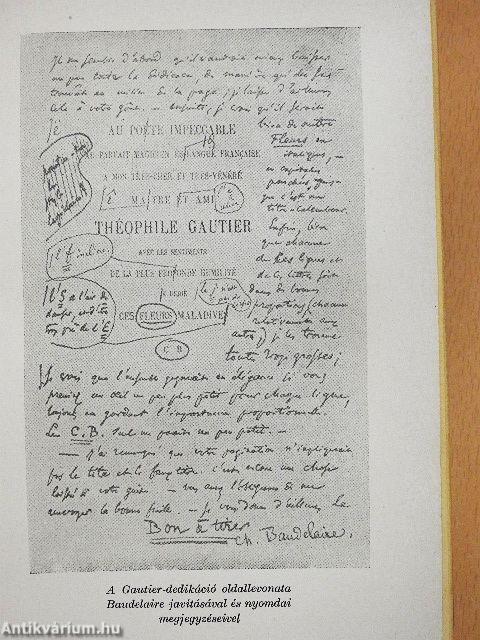 Je pense d'abord qu'il vaudrait mieux baisser
un peu toute la dédicace de manière qu'elle fût
au milieu de la page;
cela à votre goût. — ensuite, je crois qu'il serait
bon de mettre
Fleurs en
italiques, —
en capitales
penchées,
que c'est un
titre-calembour.
Enfin, bien
que chacune
de ces lignes et
de ces lettres soit
dans de bonnes
proportions
relativement aux
autres), je les trouve
toutes trop grosses;
AU POËTE IMPECCABLE
AU PARFAIT MAGICIEN ÈS LANGUE FRANÇAISE
A MON TRÈS-CHER ET TRÈS-VÉNÉRÉ
MAITRE ET AMI
THÉOPHILE GAUTIER
AVEC LES SENTIMENTS
DE LA PLUS PROFONDE HUMILITÉ
JE DÉDIE
CES FLEURS MALADIVES
C B
Je crois que l'ensemble gagnerait en élégance si vous
preniez un œil un peu plus petit pour chaque ligne,
toujours en gardant l'importance proportionnelle.
Le C.B. seul me paraît un peu petit. —
— J'ai remarqué que votre pagination n'impliquait
pas le titre et le faux titre. c'est encore une chose
à votre — vous aurez l'obligeance de me
renvoyer la bonne feuille. — Je vous donne d'ailleurs le
Bon à tirer
Ch. Baudelaire.
A Gautier-dedikáció oldallevonata
Baudelaire javításával és nyomdai
megjegyzéseivel
Antikvárium.hu